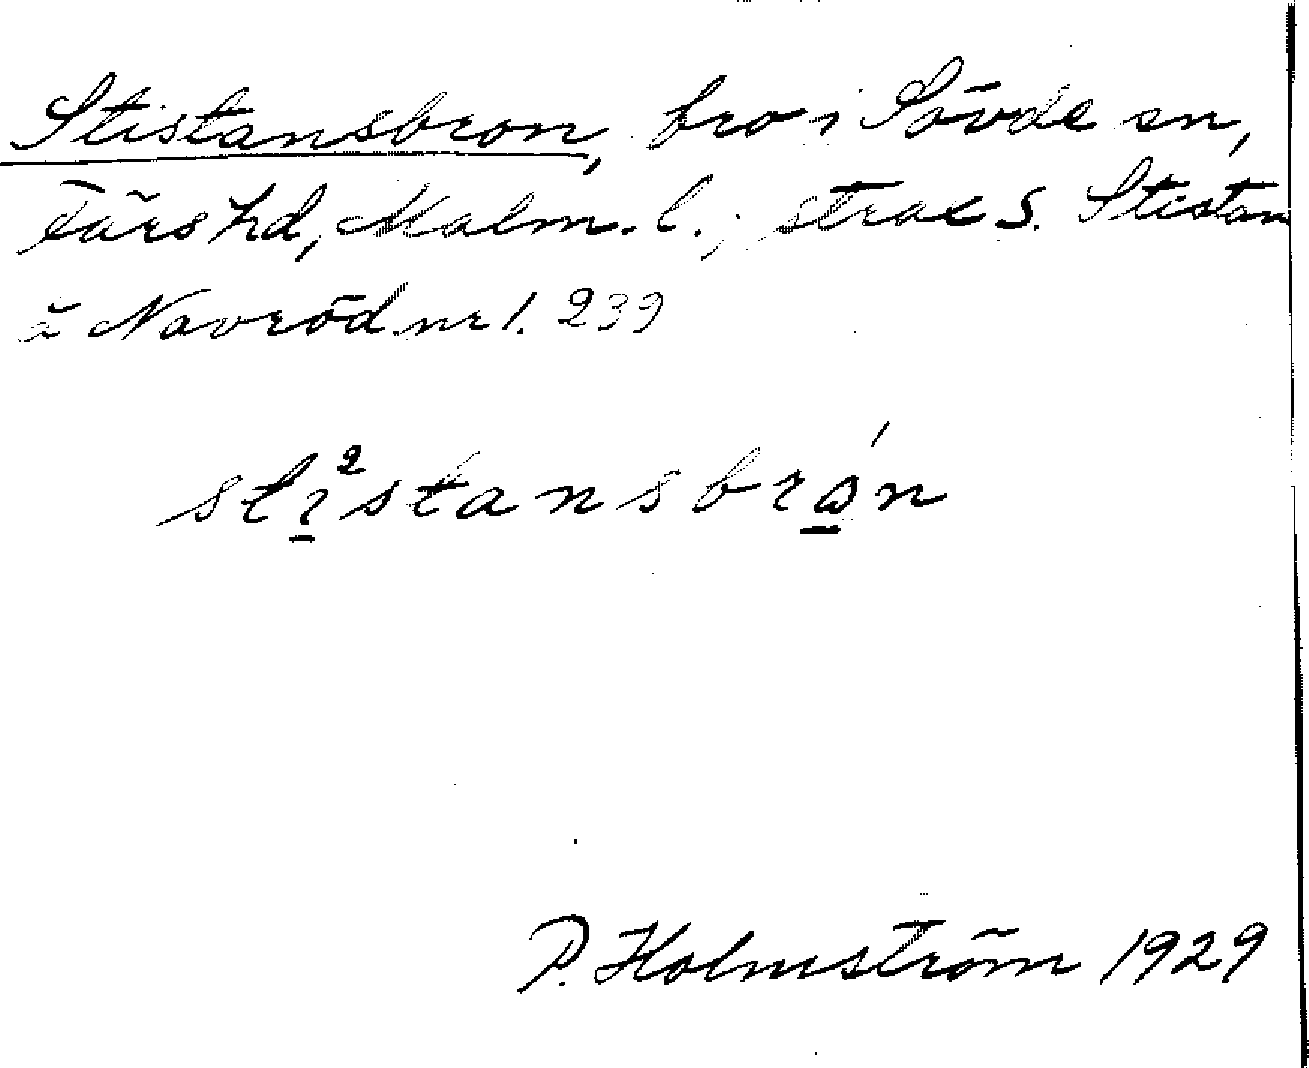 Stistansbron, bro i Sövde sn,
Färs hd, Malm. l.; strax S. Stistan
å Navröd nr 1. 239
stı²stansbrón
P. Holmström 1929